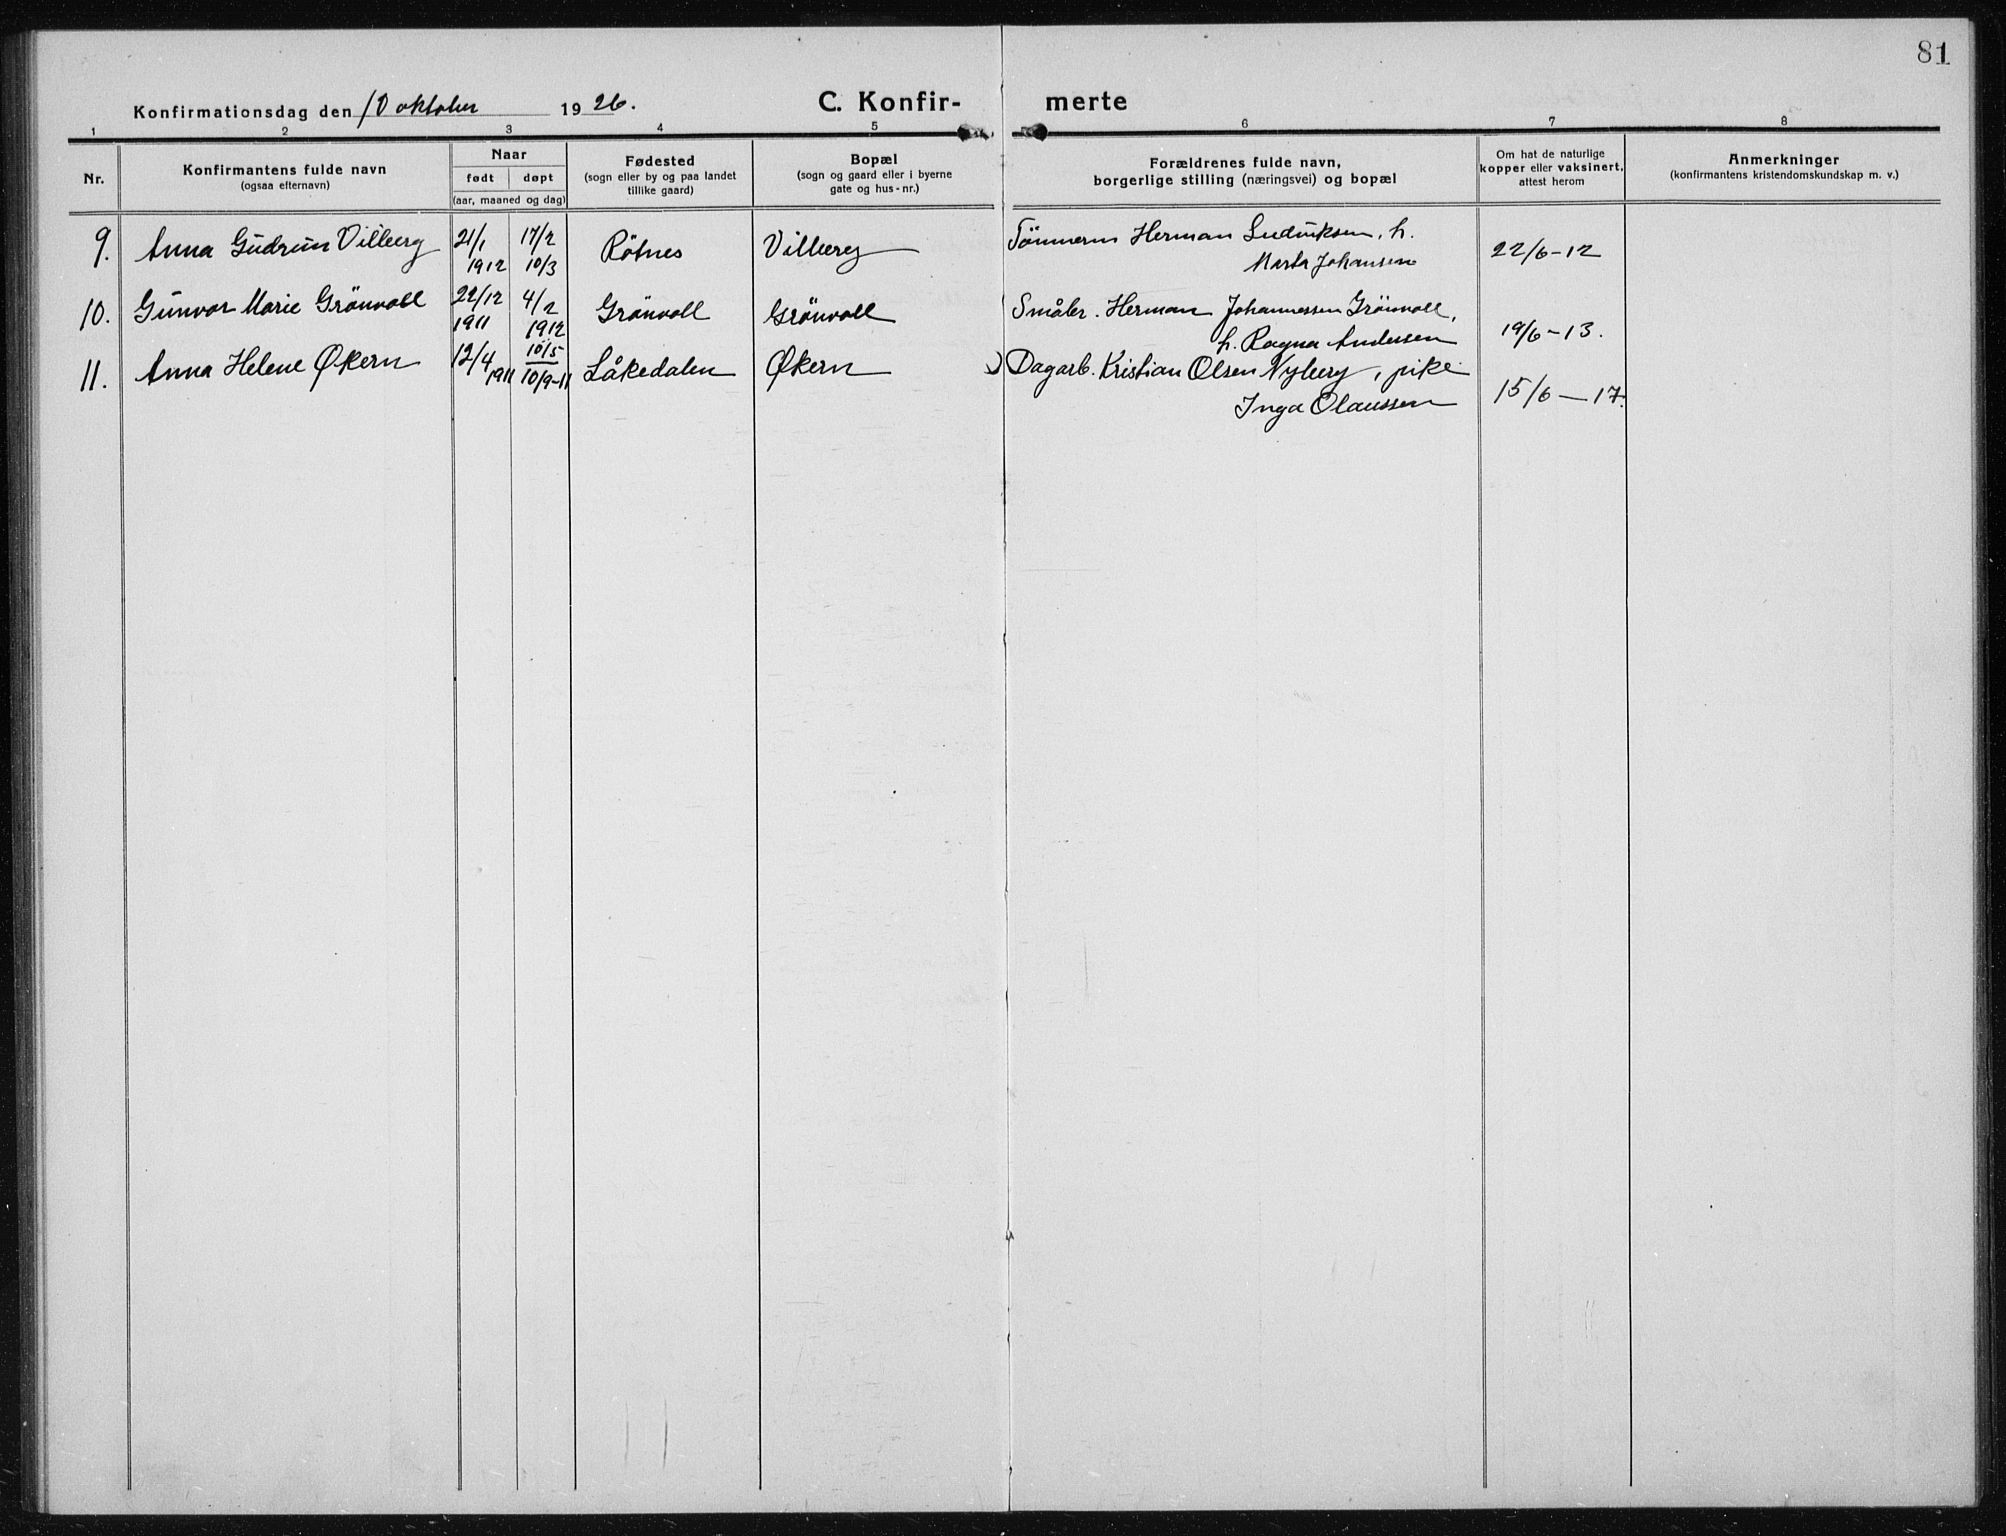 81
Konfirmationsdag den 10 oktober 1926.
C. Konfir-merte
1 2 3 4 5 6 7 8
Nr.
Konfirmantens fulde navn
(ogsaa efternavn)
Naar
født døpt
(aar, maaned og dag)
Fødested
(sogn eller by og paa landet
tillike gaard)
Bopæl
(sogn og gaard eller i byerne
gate og hus-nr.)
Forældrenes fulde navn,
borgerlige stilling (næringsvei) og bopæl
Om hat de naturlige
kopper eller vaksinert,
attest herom
Anmerkninger
(konfirmantens kristendomskundskap m. v.)
9. Anna Gudrun Vilberg 21/1 17/2 Rötnes Vilberg Tömmerm Herman Ludviksen, h. 22/6-12
1912 10/3 Marta Johansen
10. Gunvor Marie Grönvoll 22/12 4/2 Grönvoll Grönvoll Småbr. Herman Johannessen Grönvoll, 19/6-13.
1911 1912 h. Ragna Andersen
11. Anna Helene Økern 12/4 10/5 Låkedalen Økern Dagarb. Kristian Olsen Nyberg, pike 15/6-17.
1911 10/9-11 Inga Olaussen